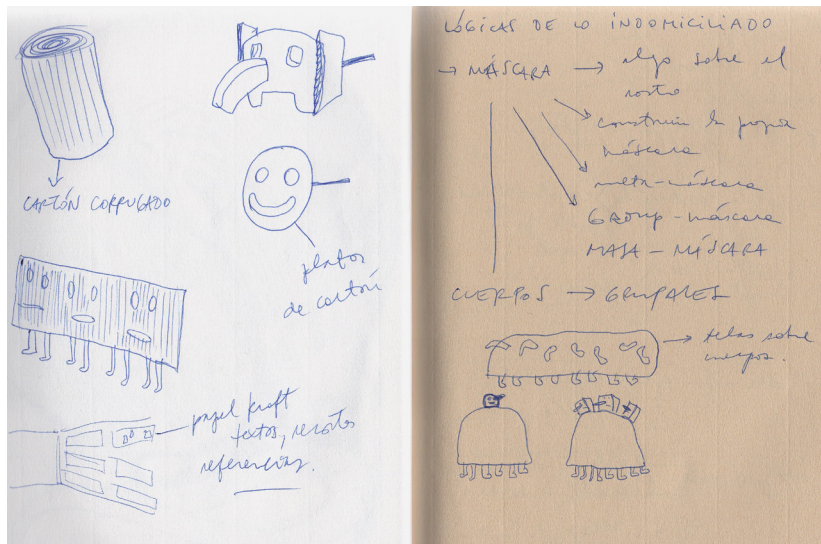 CARTÓN CORRUGADO
platos
de cartón
papel kraft
textos, recortes
referencias.
LÓGICAS DE LO INDOMICILIADO
→ MÁSCARA → algo sobre el
rostro
construir la propia
máscara
meta-máscara
GROUP-máscara
MASA-MÁSCARA
CUERPOS → GRUPALES
→ telas sobre
cuerpos.